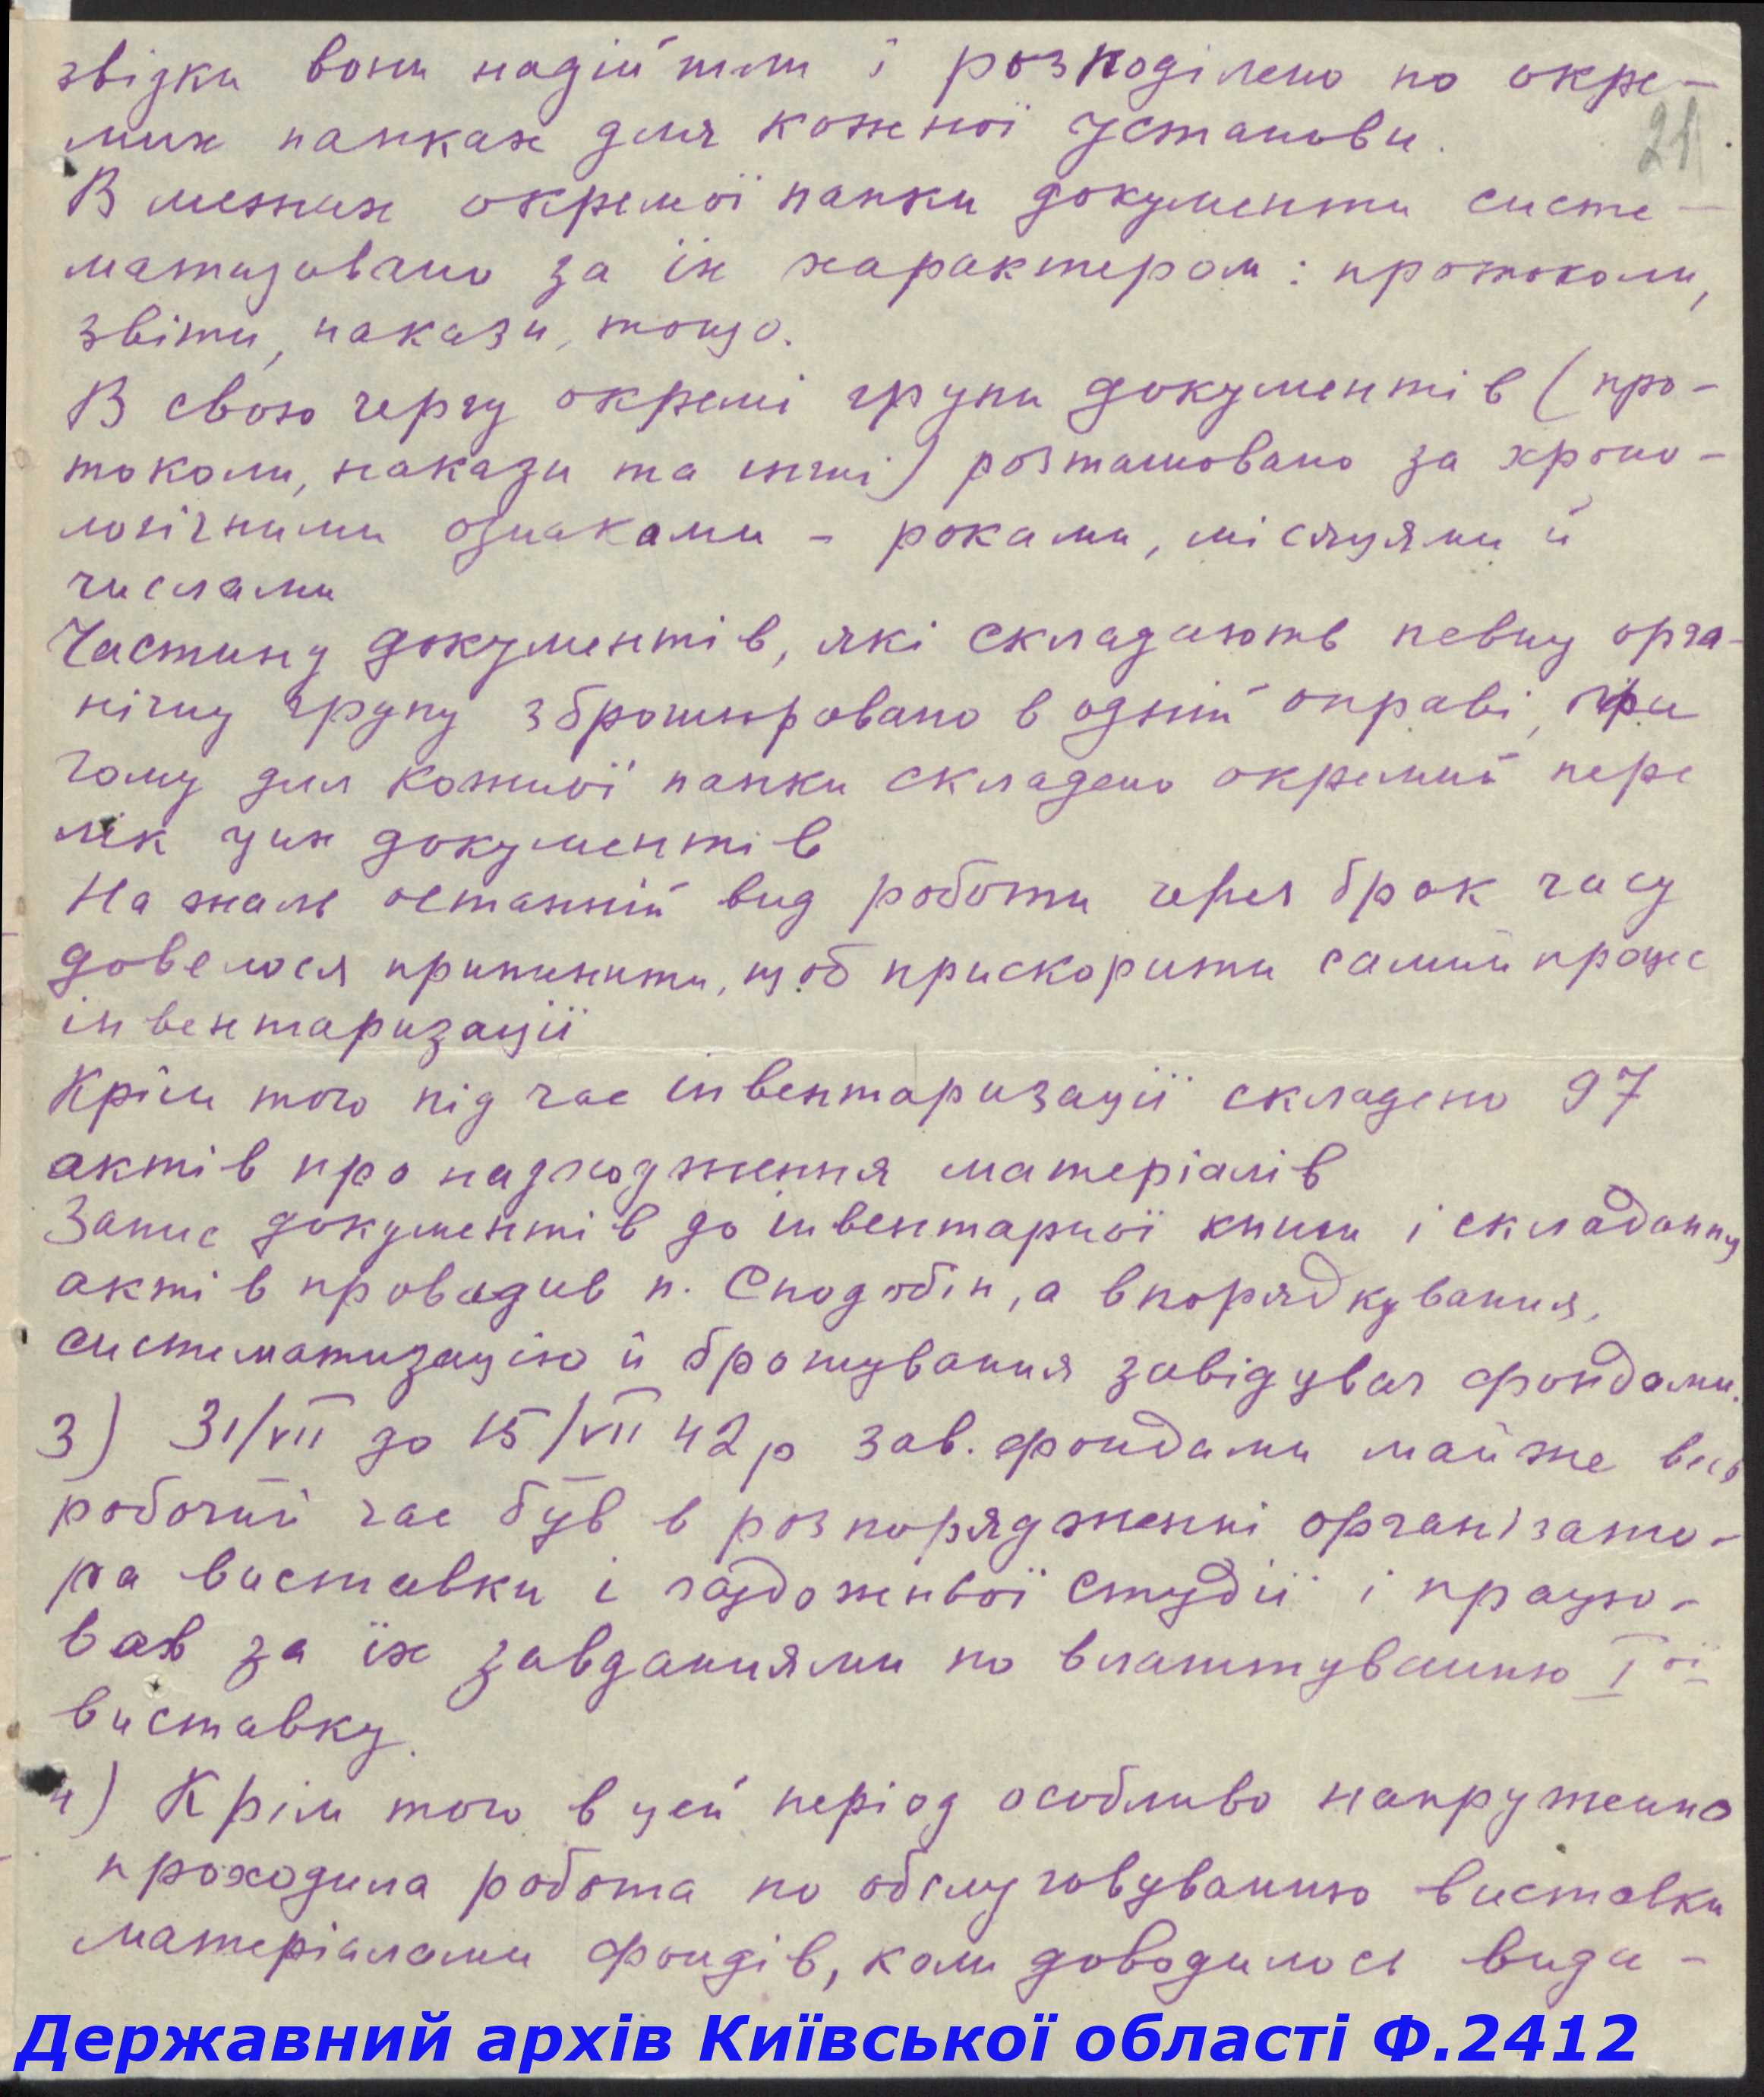 звідки вони надійшли і розподілено по окре-
мих папках для кожної установи.
21
В межах окремої папки документи систе-
матизовано за їх характером: протоколи,
звіти, накази, тощо.
В свою чергу окремі групи документів (про-
токоли, накази та инші) розташовано за хроно-
логічними ознаками - роками, місяцями й
числами
Частину документів, які складають певну орга-
нічну групу зброшуровано в одній оправі, при
чому для кожної папки складено окремий пере
лік цих документів
На жаль останній вид роботи через брак часу
довелося припинити, щоб прискорити самий процес
інвентаризації
Крім того під час інвентаризації складено 97
актів про надходження матеріалів
Запис документів до інвентарної книги і складання
актів провадив п. Сподобін, а впорядкування,
систематизацію й брошування завідувач фондами.
3) З 1/VII до 15/VII 42 р зав. фондами майже весь
робочий час був в розпорядженні організато-
ра виставки і художньої студії і працю-
вав за їх завданнями по влаштуванню І ої
виставку.
4) Крім того в цей період особливо напружено
проходила робота по обслуговуванню виставки
матеріалами фондів, коли доводилося вида-
Державний архів Київської області Ф.2412